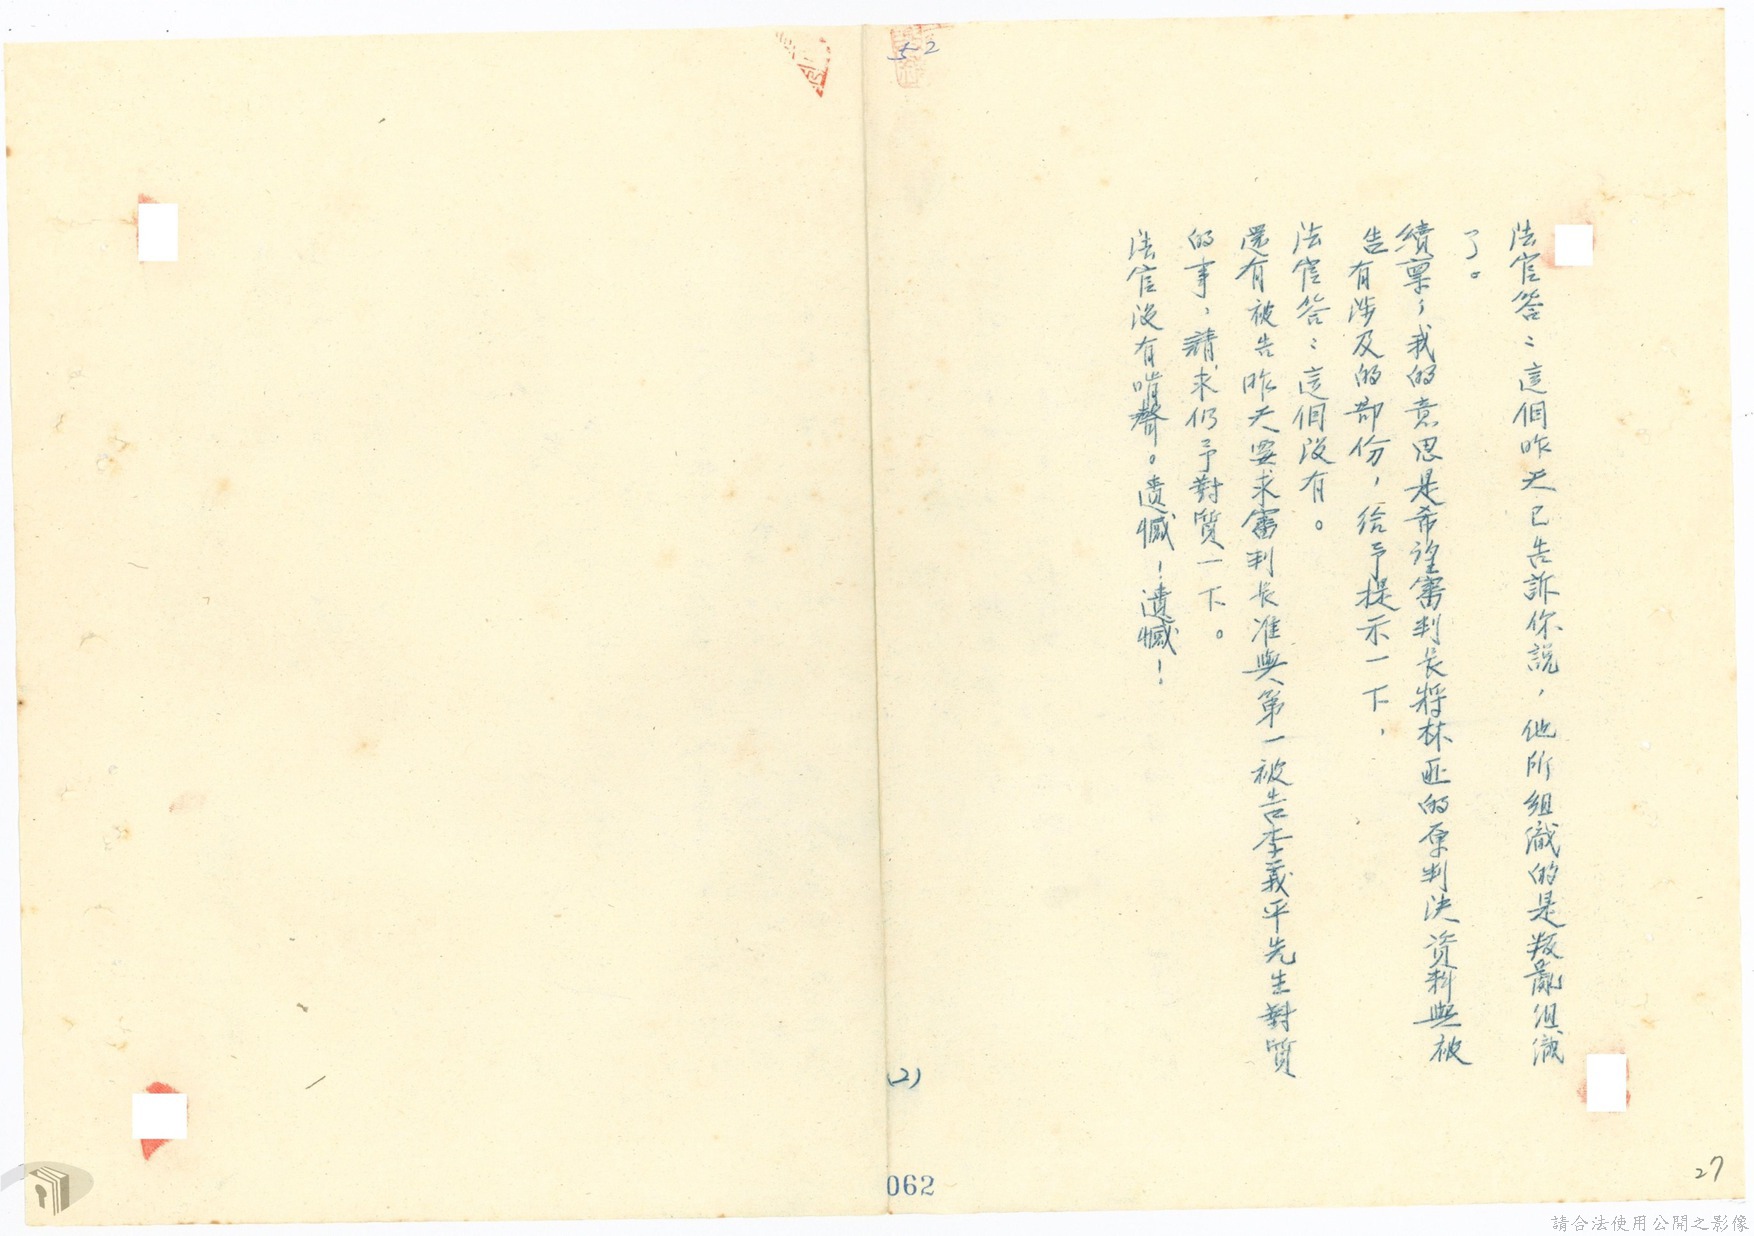 法官答：這個昨天已告訴你說，他所組織的是叛亂組織
了。
續稟，我的意思是希望審判長將林匪的原判決資料與被
告有涉及的部份，給予提示一下，
法官答：這個沒有。
還有被告昨天要求審判長准與第一被告李義平先生對質
的事，請求仍予對質一下。
法官沒有啃聲。遺憾！遺憾！
5-2
(2)
062
27
請合法使用公開之影像